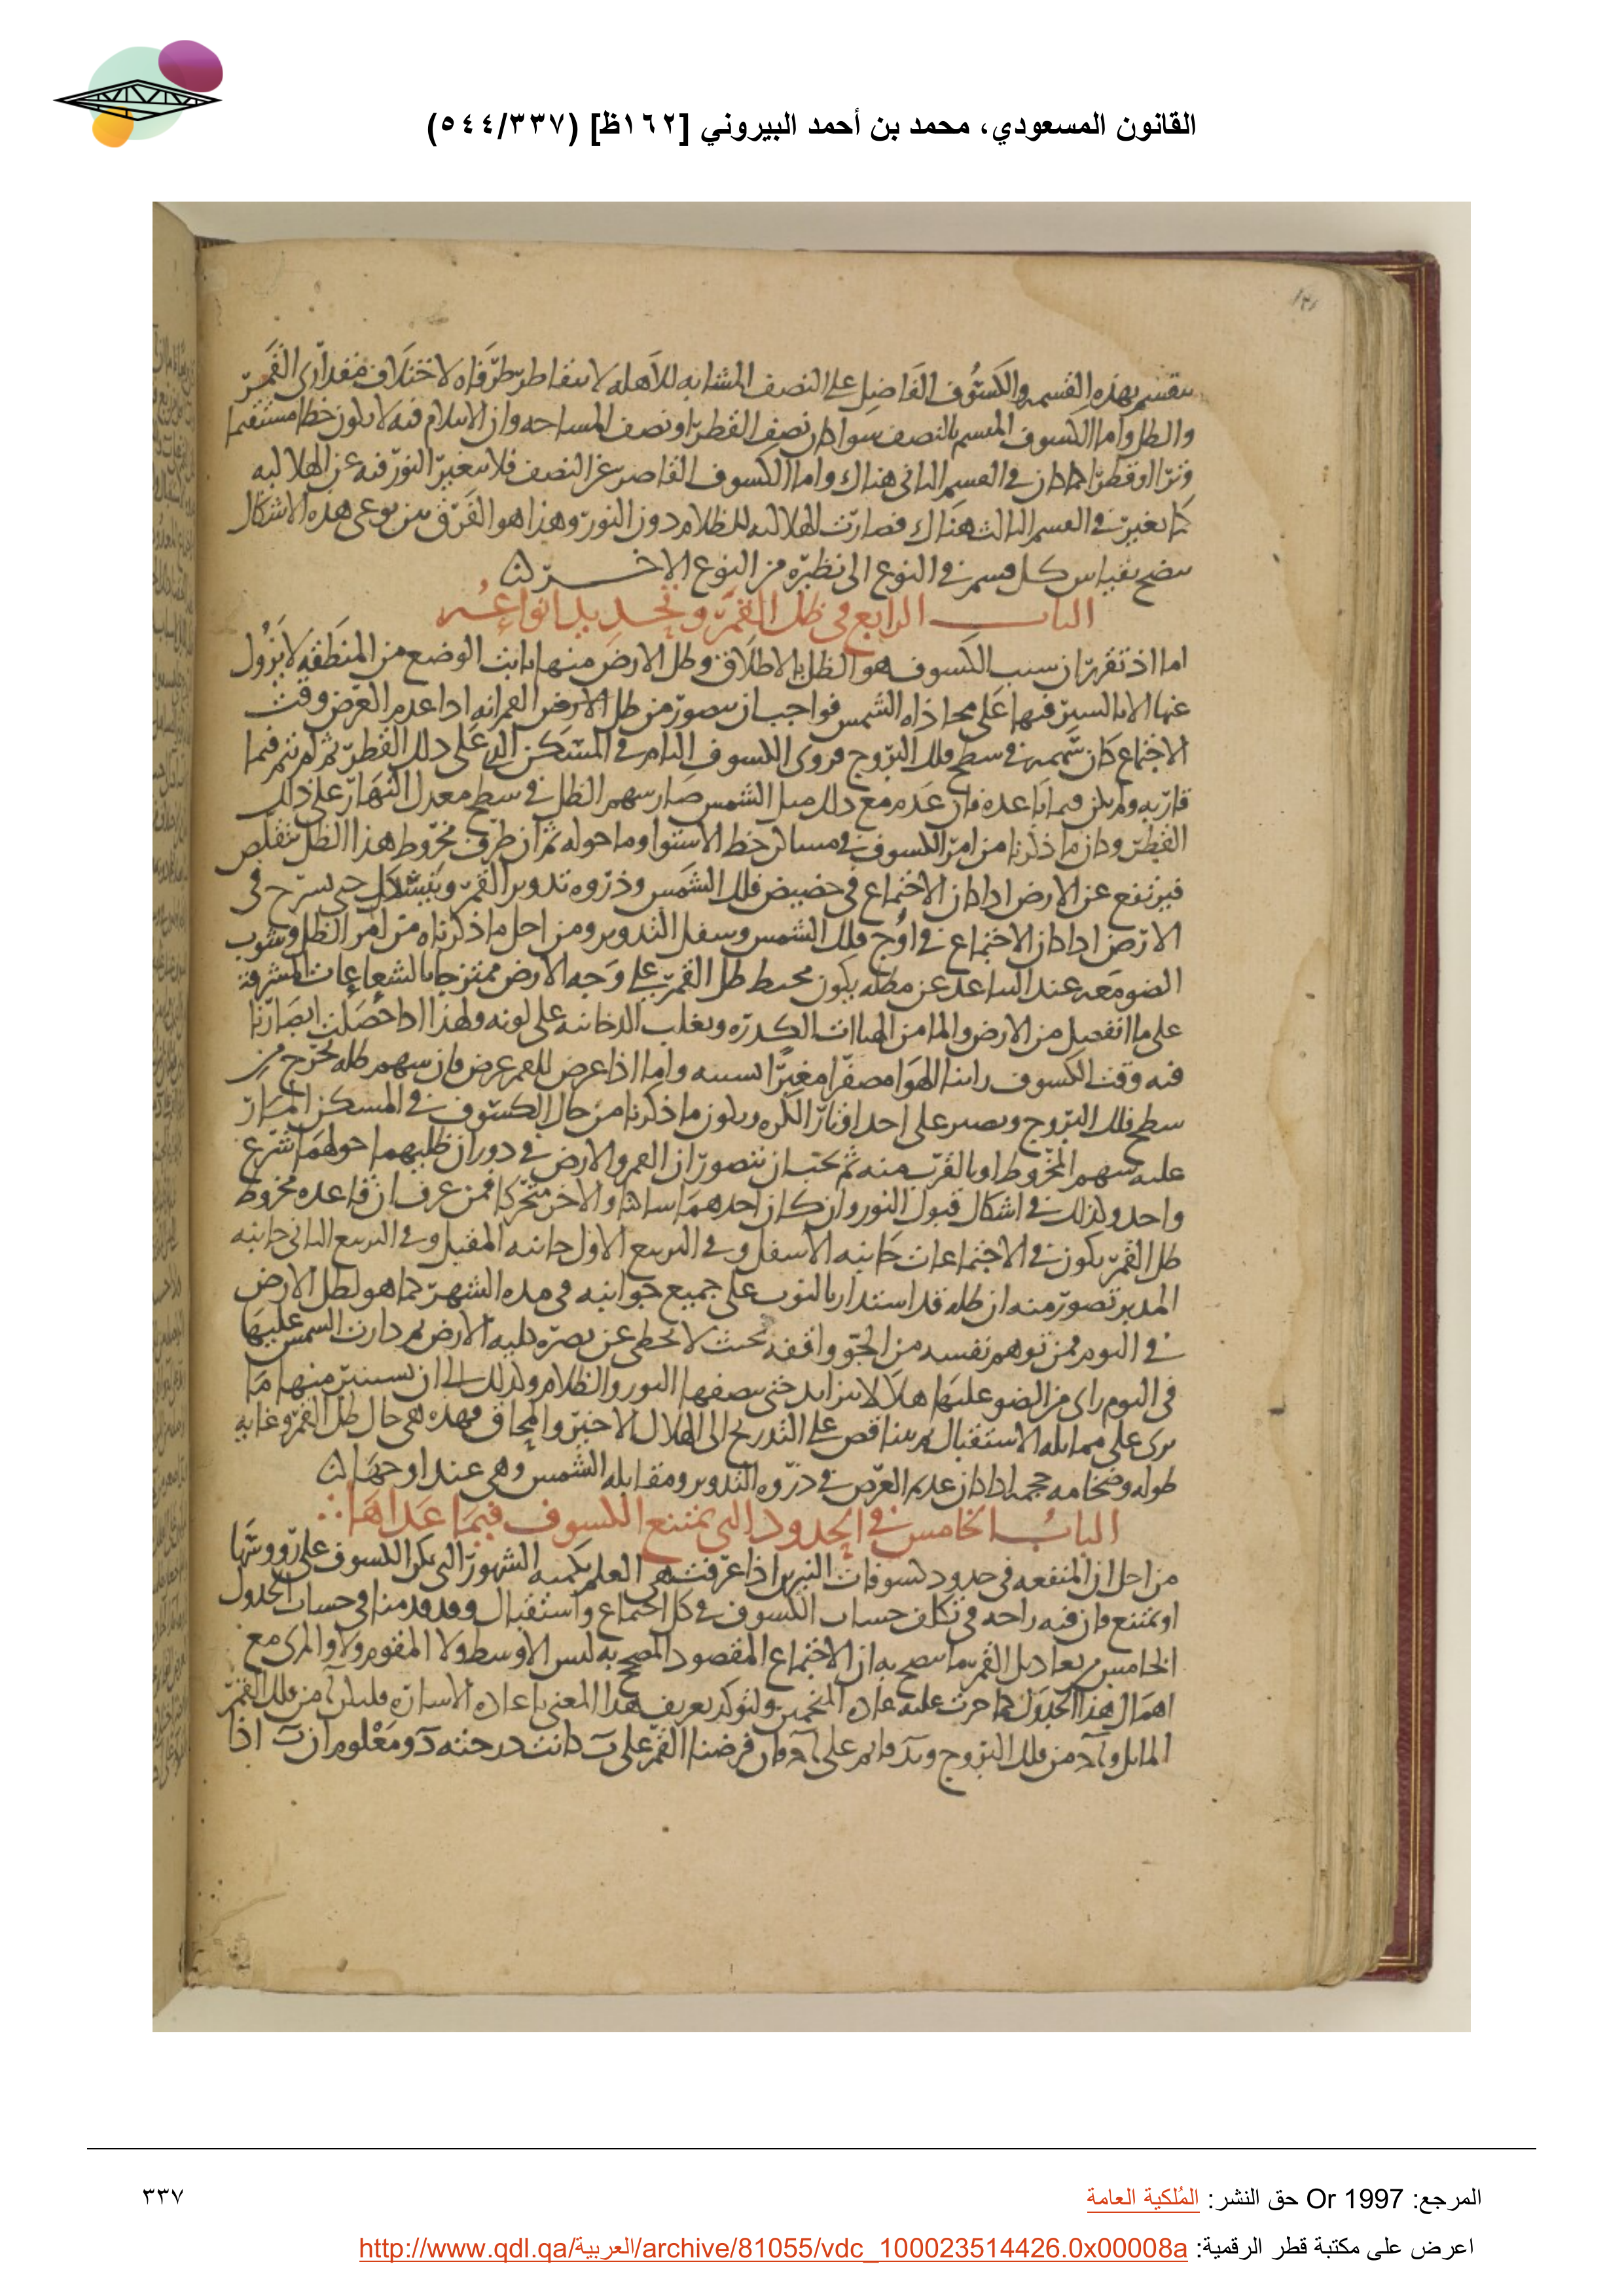 القانون المسعودي، محمد بن أحمد البيروني [١٦٢ظ] (٥٤٤/٣٣٧)
بهذه القسمه والكسوف الفاضل على النصف المشابه للاهله لا طرفاه لاختلاف مقدارى القمر
والظل واما الكسوف بالنصف سوا كان نصف القطر او نصف المساحه وان فيه لا يكون خطا مستقيما
وترا او قطرا كما كان فى القسم الثانى هناك واما الكسوف القاصر عن النصف فلا يتغير النور فيه عن الهلاليه
كما تغير فى القسم الثالث هناك فصارت الهلاليه للظلام دون النور وهذا هو الفرق بين نوعى هذه الاشكال
يتضح بقياس كل قسم فى النوع الى نظيره من النوع الاخر
الباب الرابع فى ظل القمر وتحديد انواعه
اما اذ تقرر ان سبب الكسوف هو الظل بالاطلاق وظل الارض منها ثابت الوضع من المنطقه لا يزول
عنها الا بالسير فيها على محاذاه الشمس فواجب ان يتصور من ظل الارض القمر انه اذا عدم العرض وقت
الاجتماع كان سهمه فى سطح فلك البروج فروى الكسوف التام فى المسكن الذى على ذلك القطر ثم لم يتم فيما
قاربه ولم يكن فيما باعده فان عدم مع ذلك ميل الشمس صار سهم الظل فى سطح معدل النهار على ذلك
القطر وكان ما ذكرنا من امر الكسوف فى مساكن خط الاستوا وما حوله ثم ان طرف مخروط هذا الظل يتقلص
فيرتفع عن الارض اذا كان الاجتماع فى حضيض فلك الشمس وذروه تدوير القمر حتى فى
الارض اذا كان الاجتماع فى اوج فلك الشمس وسفل التدوير ومن اجل ما ذكرناه من امر الظل وشوب
الضو معه عند التباعد عن مظله يكون محيط ظل القمر على وجه الارض ممتزجا بالشعاعات المشرقة
على ما انفصل من الارض والما من الهباات الكدره وبغلب الدخانيه على لونه ولهذا اذا حصلت ابصارنا
فيه وقت الكسوف راينا الهوا مصفرا مغبرا بسببه واما اذا عرض للقمر عرض فان سهم ظله يخرج من
سطح فلك البروج ويصير على احد اوتار الكره ويكون ما ذكرنا من حال الكسوف فى المسكن المار
عليه سهم المخروط او بالقرب منه ثم يجب ان يتصور ان القمر والارض فى دوران ظليهما حولهما شرع
واحد وكذلك فى اشكال قبول النور وان كان احدهما ساكنا والاخر متحركا فمن عرف ان قاعده مخروط
ظل القمر يكون فى الاجتماعات جانبه الاسفل وفى التربيع الاول جانبه المقبل وفى التربيع الثانى جانبه
المدبر تصور منه ان ظله قد استدار بالنوب على جميع جوانبه فى مده الشهر كما هو لظل الارض
فى اليوم فمن توهم نفسه من الجو واقفه بحيث لا يخطى عن بصره كليه الارض ثم دارت الشمس عليها
فى اليوم راى من الضو عليها هلالا يتزايد حتى ينصفها النور والظلام وكذلك الى ان يستنير منها ما
يرى على مماثله الاستقبال ثم يتناقص على التدريج الى الهلال الاخير والمحاق فهذه هى حال ظل القمر وغايه
طوله وضخامه حجمه اذا كان عديم العرض فى ذروه التدوير ومقابله الشمس وهى عند اوجها
الباب الخامس فى الحدود التى يمتنع الكسوف فيما عداها
من اجل ان المنفعه فى حدود كسوفات النيرين اذا عرفت هى العلم بكميه الشهور التى يمكن الكسوف على رووسها
او يمتنع فان فيه راحه فى تكلف حساب الكسوف فى كل اجتماع واستقبال وقد قدمنا فى حساب الجدول
الخامس من تعاديل القمر ما يتضح به ان الاجتماع المقصود المصحح به ليس الاوسط ولا المقوم ولا والمرى مع
اهمال هذا الجدول كما جرت عليه عاده المنجمين ولنوكد تعريف هذا المعنى باعاده الاشاره فليكن ا من فلك القمر
المايل من فلك البروج قايم على وان فرضنا القمر على كانت درجته ومعلوم ان اذا
المرجع: Or 1997 حق النشر: المُلكية العامة
اعرض على مكتبة قطر الرقمية: http://www.qdl.qa/العربية/archive/81055/vdc_100023514426.0x00008a
٣٣٧